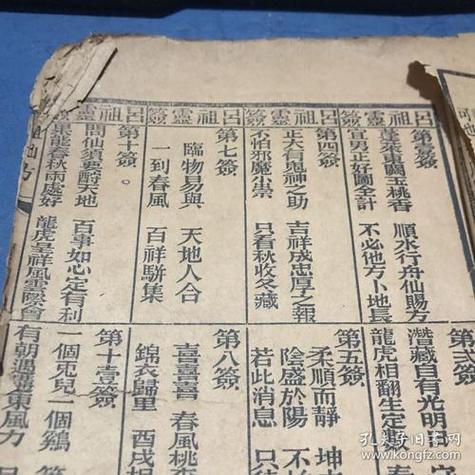 呂祖靈簽
呂祖靈簽
呂祖靈簽
第壹簽
蓬萊東閣玉桃香 順水行舟仙賜方
宜男正好圖全計 不必他方卜地長
第四簽
正大有鬼神之助 吉祥成忠厚之報
不怕邪魔小祟 只看秋收冬藏
第七簽
臨物易與 天地人合
一到春風 百祥駢集
第十簽。
問仙須要酹天地 百事如心定有利
果能春秋雨處好 龍虎呈祥風雲際會
第弍簽
潛藏自有光明
龍虎相翻生定
第五簽
柔順而靜 坤
陰盛於陽 不
若此消息 只
第八簽
喜喜喜 春風桃
錦衣歸里 酉戌
第十壹簽
一個兎兒一個鷄
有朝遇着東風力
孔夫子旧书网
www.kongfz.com